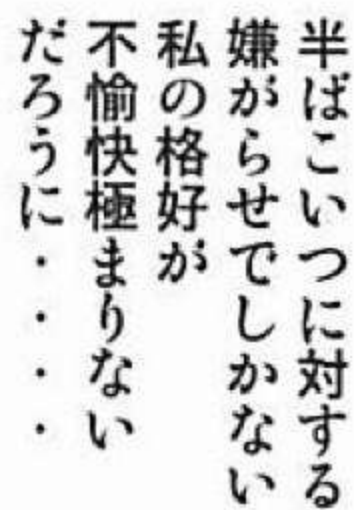 半ばこいつに対する
嫌がらせでしかない
私の格好が
不愉快極まりない
だろうに・・・・